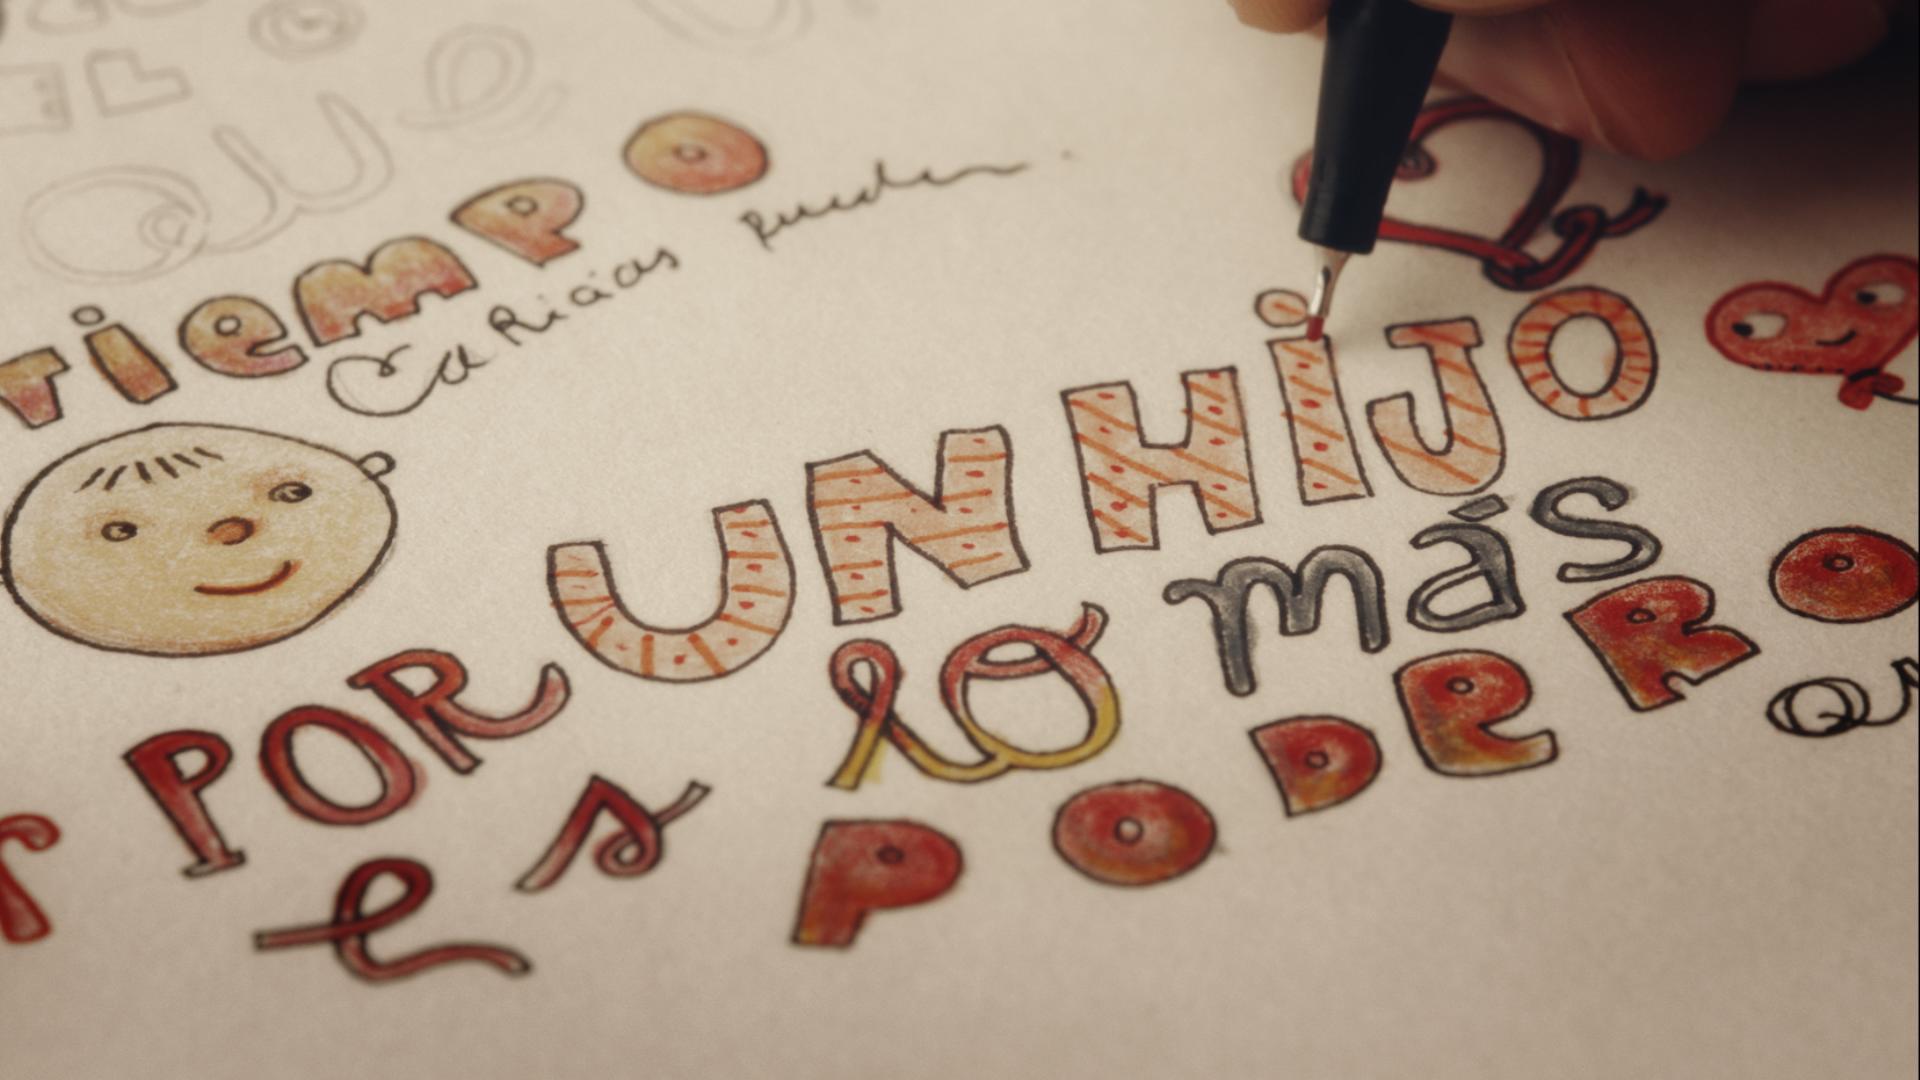 que
TiemPO
CaRicias Pueden
POR UN HiJO
es lo más
PODERO